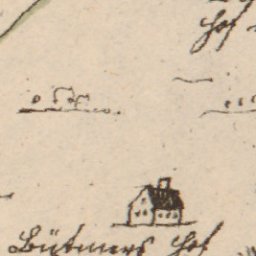 Hof
Bütners Hof